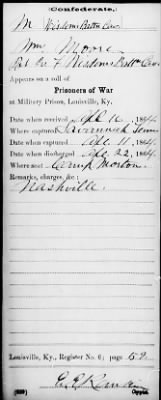 Confederate.
M Wirtons Battn Cav.
Wm. Moore
Pvt Co. F Wirtons Battn Cav.
Appears on a roll of
Prisoners of War
at Military Prison, Louisville, Ky.
Date when received Apl 16, 1864
Where captured Savannah Tenn
Date when captured Apl. 11, 1864.
Date when discharged Apl 22, 1864.
Where sent Camp Morton.
Remarks, charges, &c.:
Nashville.
Louisville, Ky., Register No. 6; page 52
Copyist.